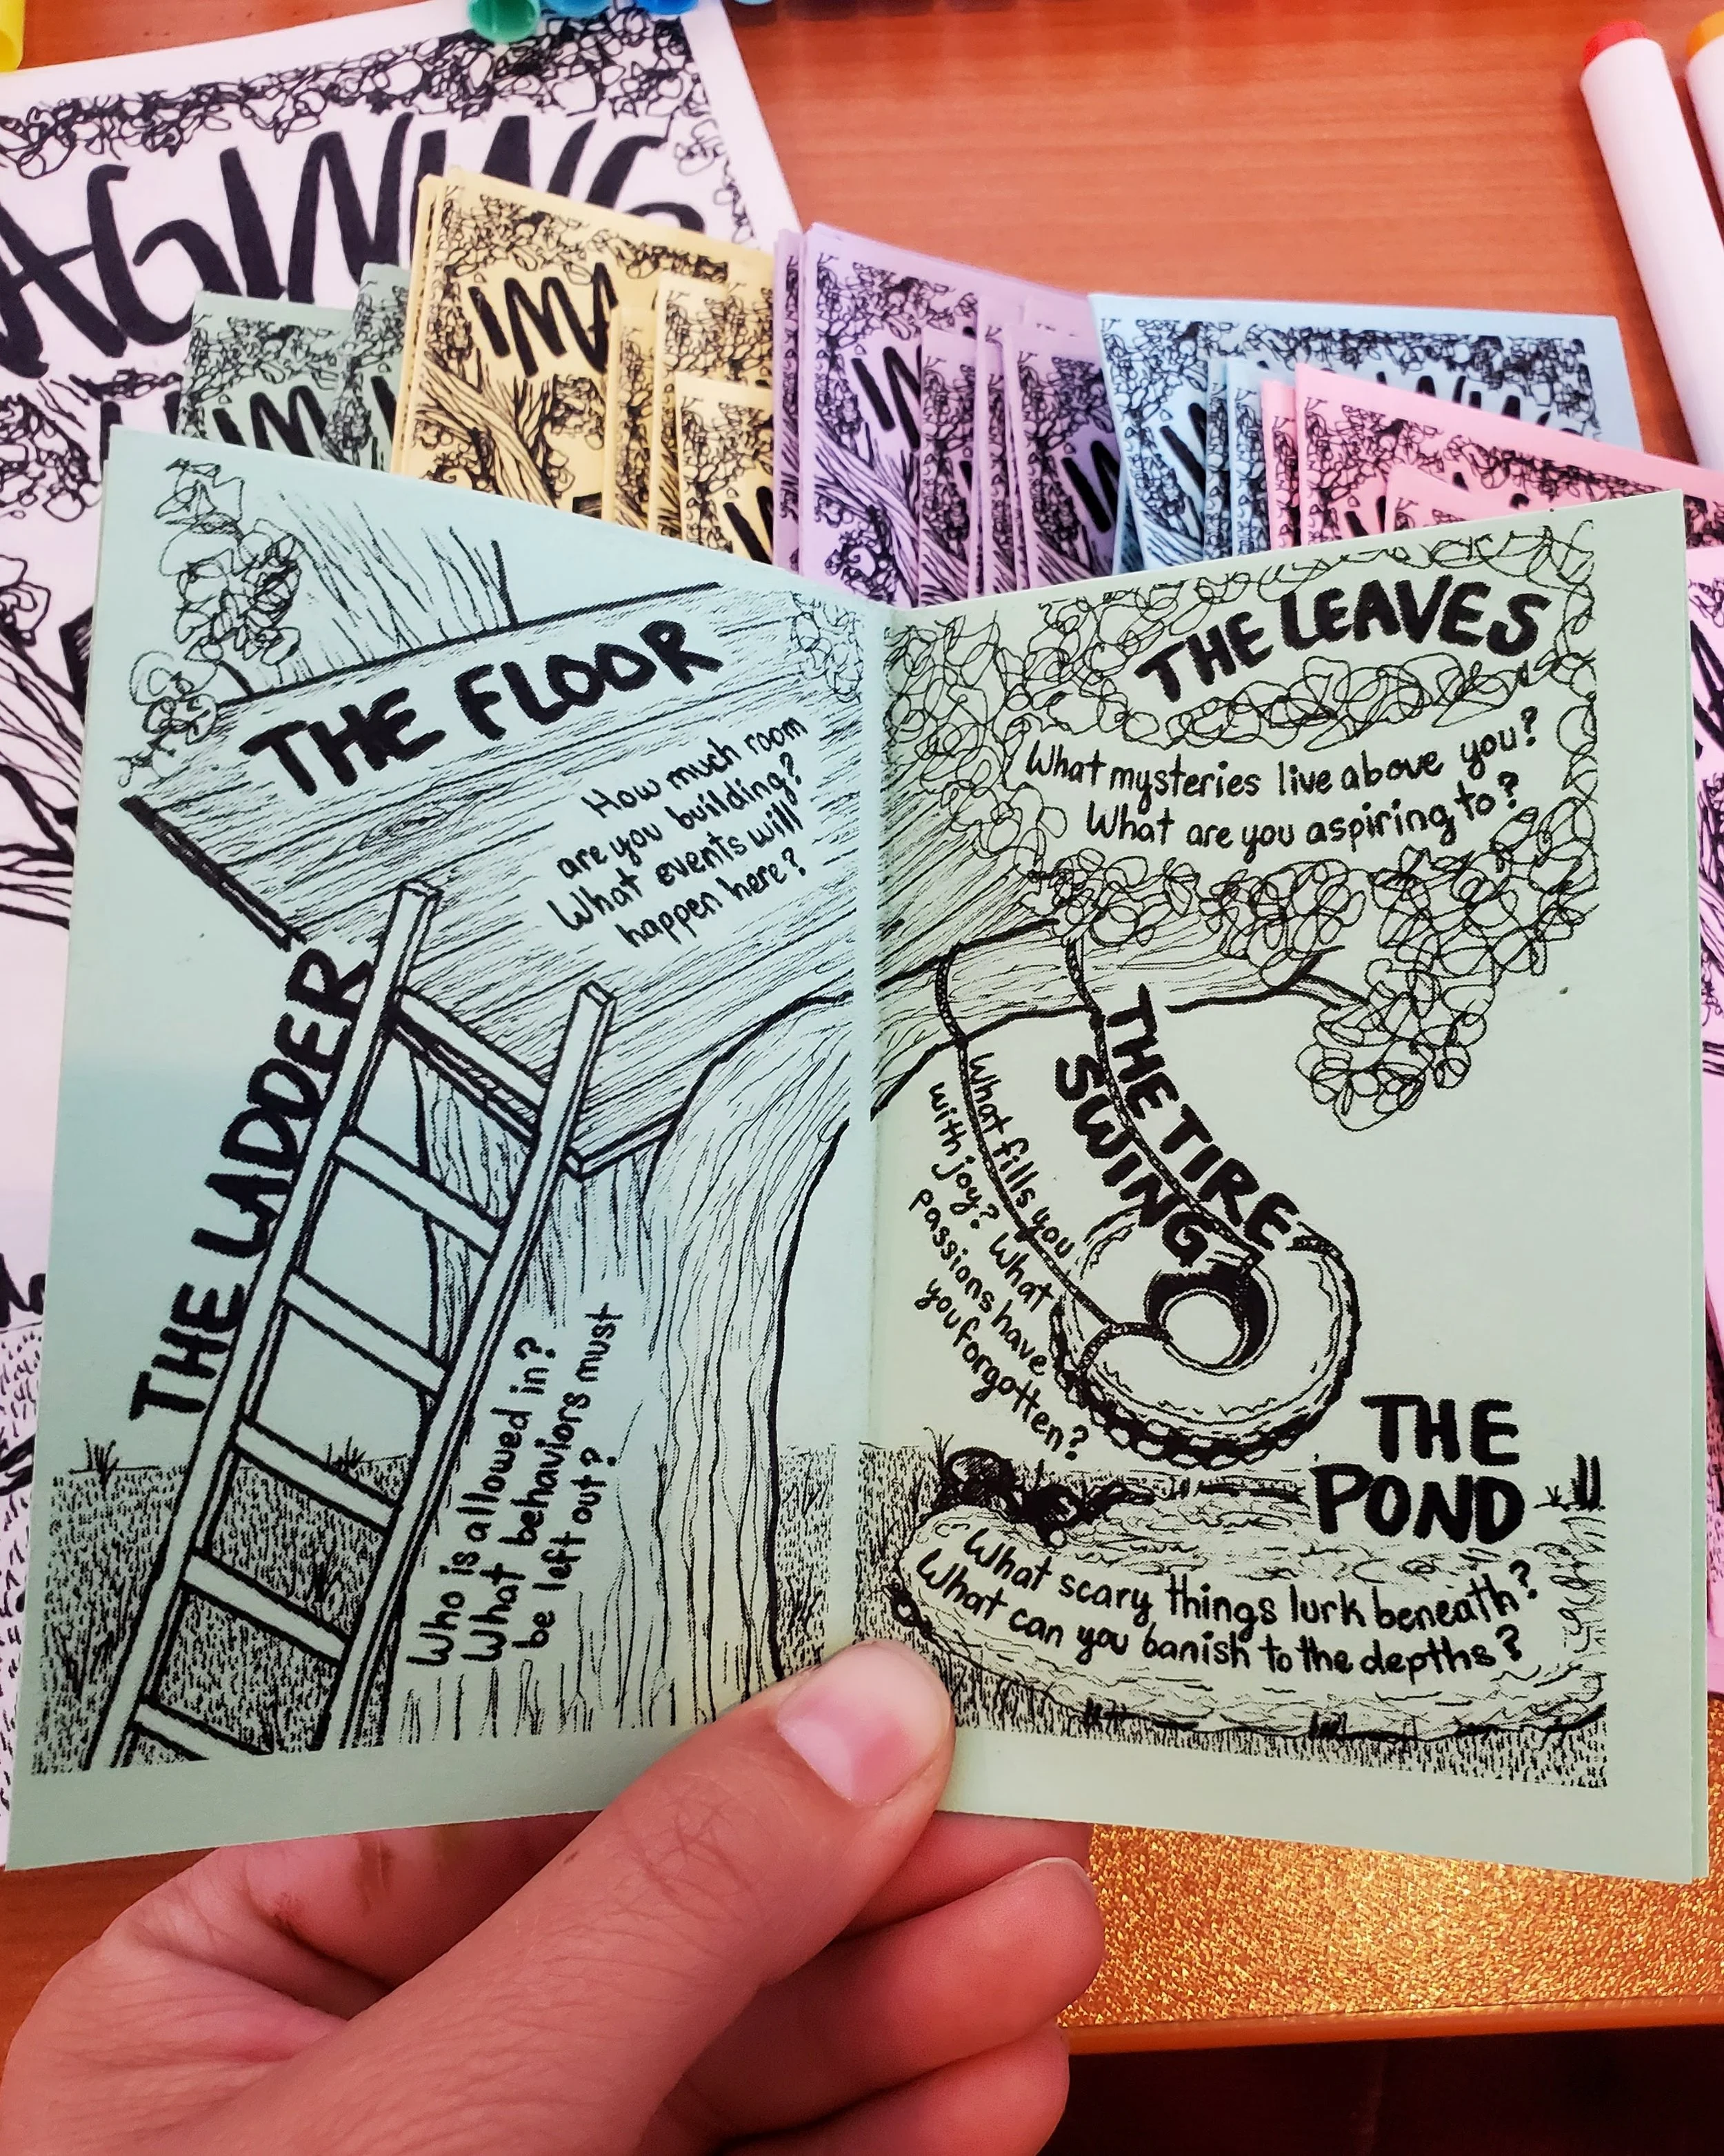 AGINING
IM
IM
THE FLOOR
How much room
are you building?
What events will
happen here?
THE LADDER
Who is allowed in?
What behaviors must
be left out?
THE LEAVES
What mysteries live above you?
What are you aspiring to?
THE TIRE
SWING
What fills you
with joy? What
passions have
you forgotten?
THE
POND
What scary things lurk beneath?
What can you banish to the depths?